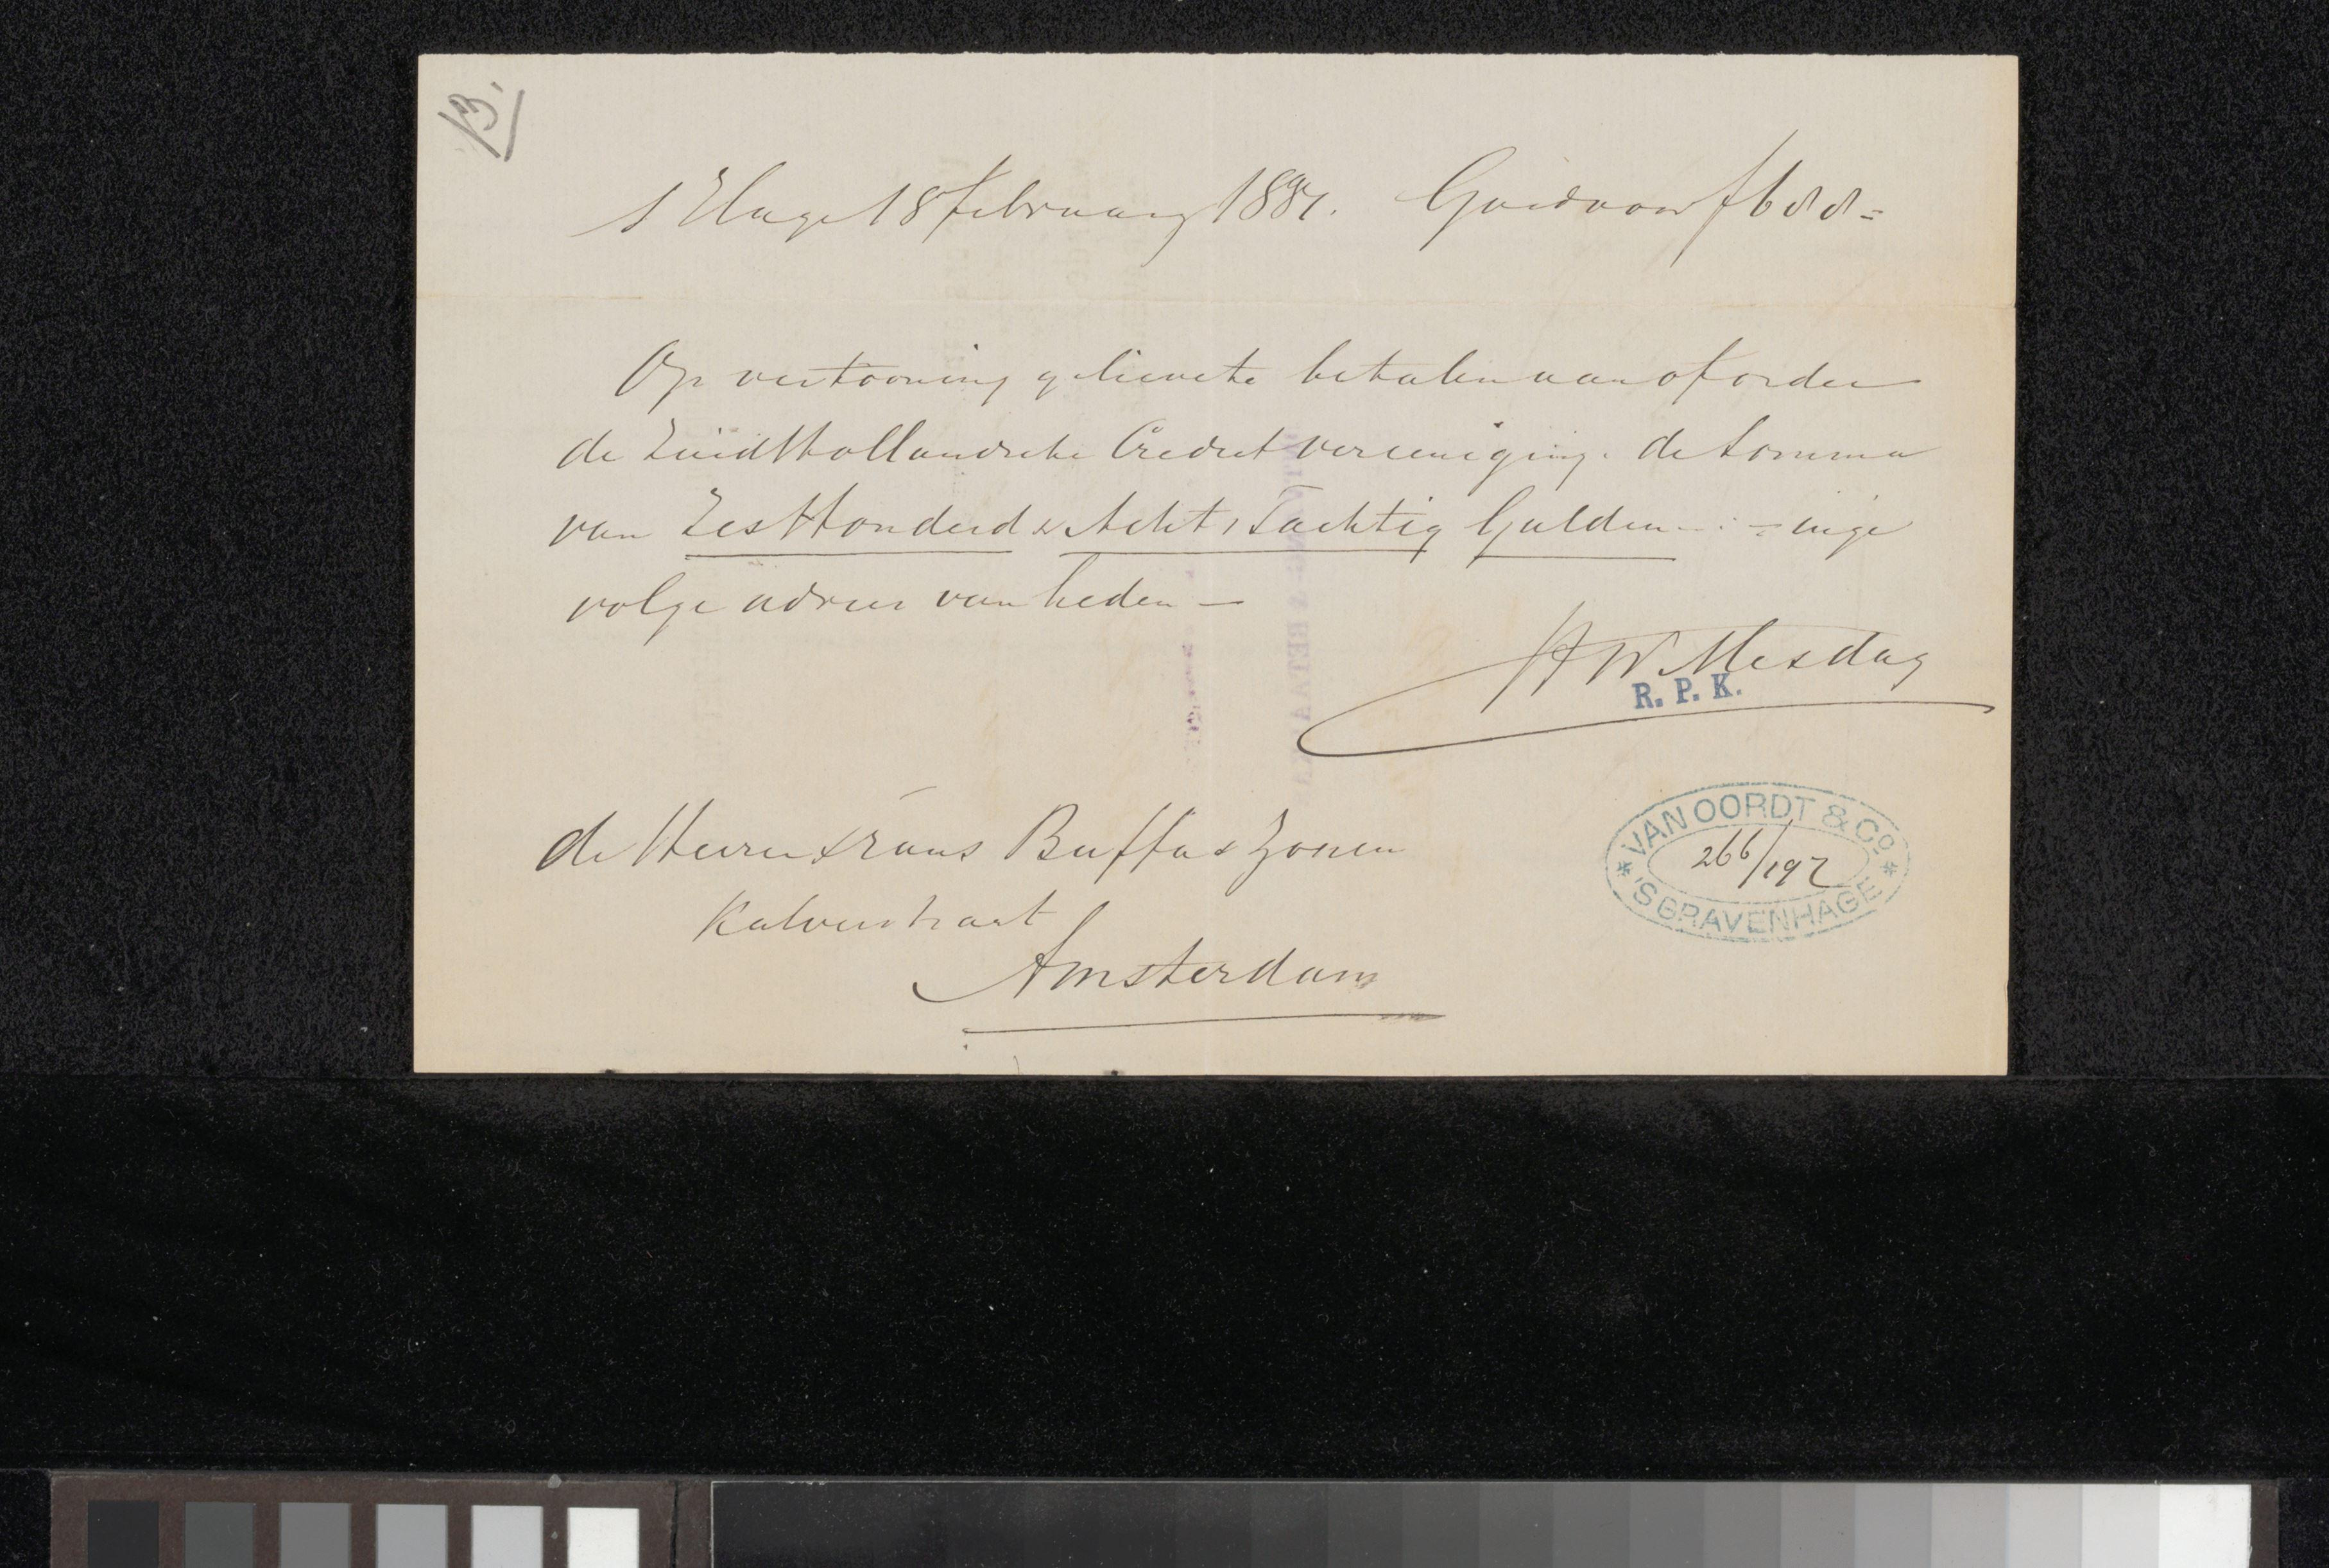 B.
s'Hage 18 februarij 1891. Goedvoor f 688.=
Op vertooning gelievete betalen aan of order
de Zuid Hollandsche Credietvereeniging. de somma
van Zes Honderd & Acht & Tachtig Gulden - . - = inge
volge advies van heden —
HW Mesdag
R. P. K.
de Heeren Frans Buffa & Zonen
Kalverstraat
Amsterdam
* VAN OORDT & Co. *
266/192
'S GRAVENHAGE